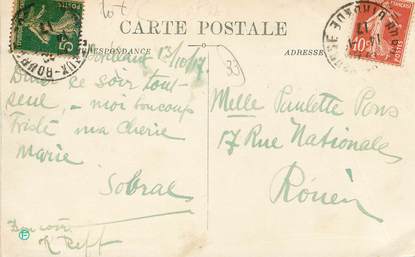 CARTE POSTALE
CORRESPONDANCE
ADRESSE
33
Bordeaux 13/10/17
Diner ce soir tout-
seul, - moi boucoup
Triste ma Cherie
Marie
Sobral
Melle Paulette Pons
17 Rue Nationale
Rouen
5
10